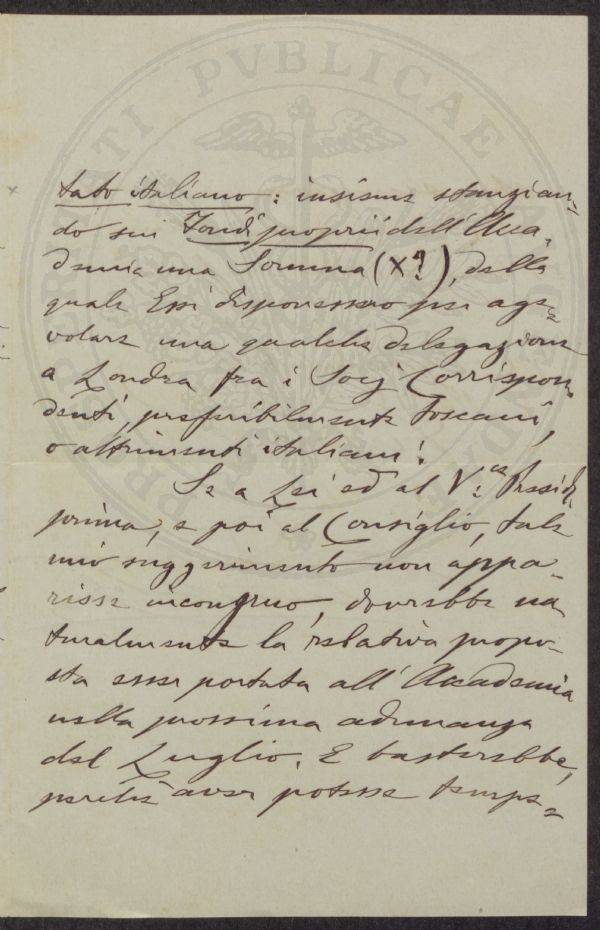 PROSPERITATI PVBLICAE
tato italiano: insieme stanzian=
do sui Fondi proprii dell'Acca
demia una Somma (X?), della
quale Essi disponessero per age=
volare una qualche delegazione
a Londra fra i Socj Corrispon
denti, preferibilmente toscani,
o altrimenti italiani!
Se a Lei ed al V.ce Presid.
prima, e poi al Consiglio, tale
mio suggerimento non appa=
risse incongruo, dovrebbe na
turalmente la relativa propo=
sta esser portata all'Accademia
nella prossima adunanza
del Luglio. E basterebbe,
perchè aver potesse tempe=